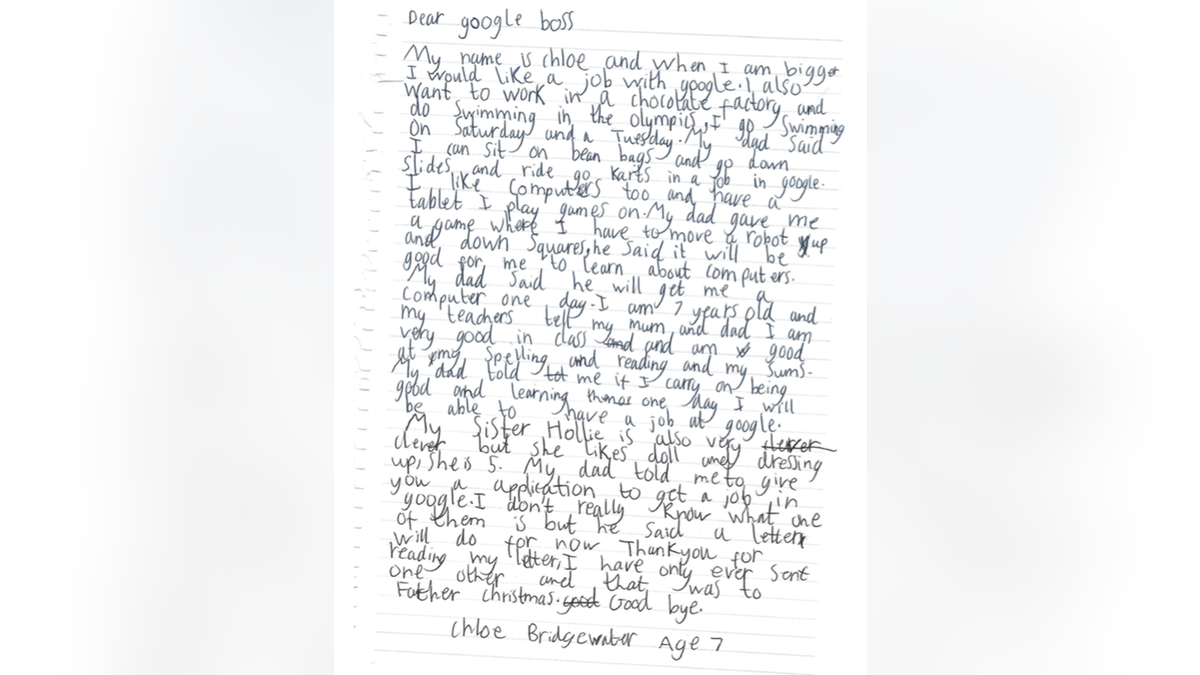 Dear google boss
My name is chloe and when I am bigger
I would like a job with google. I also
want to work in a chocolate factory and
do Swimming in the olympics, I go Swimming
On Saturday and a Tuesday. My dad Said
I can sit on bean bags and go down
slides and ride go karts in a job in google.
I like computers too and have a
tablet I play games on. My dad gave me
a game where I have to move a robot up
and down Squares, he Said it will be
good for me to learn about computers.
My dad said he will get me a
computer one day. I am 7 years old and
my teachers tell my mum and dad I am
very good in class and and am good
at my Spelling and reading and my Sums.
My dad told tot me if I carry on being
good and learning one day I will
be able to have a job at google.
My Sister Hollie is also very clever
clever but she likes doll and dressing
up, she is 5. My dad told me to give
you a application to get a job in
google. I don't really know what one
of them is but he said a letter
will do for now Thankyou for
reading my letter, I have only ever sent
one other and that was to
Father christmas. good Good bye.
Chloe Bridgewater Age 7